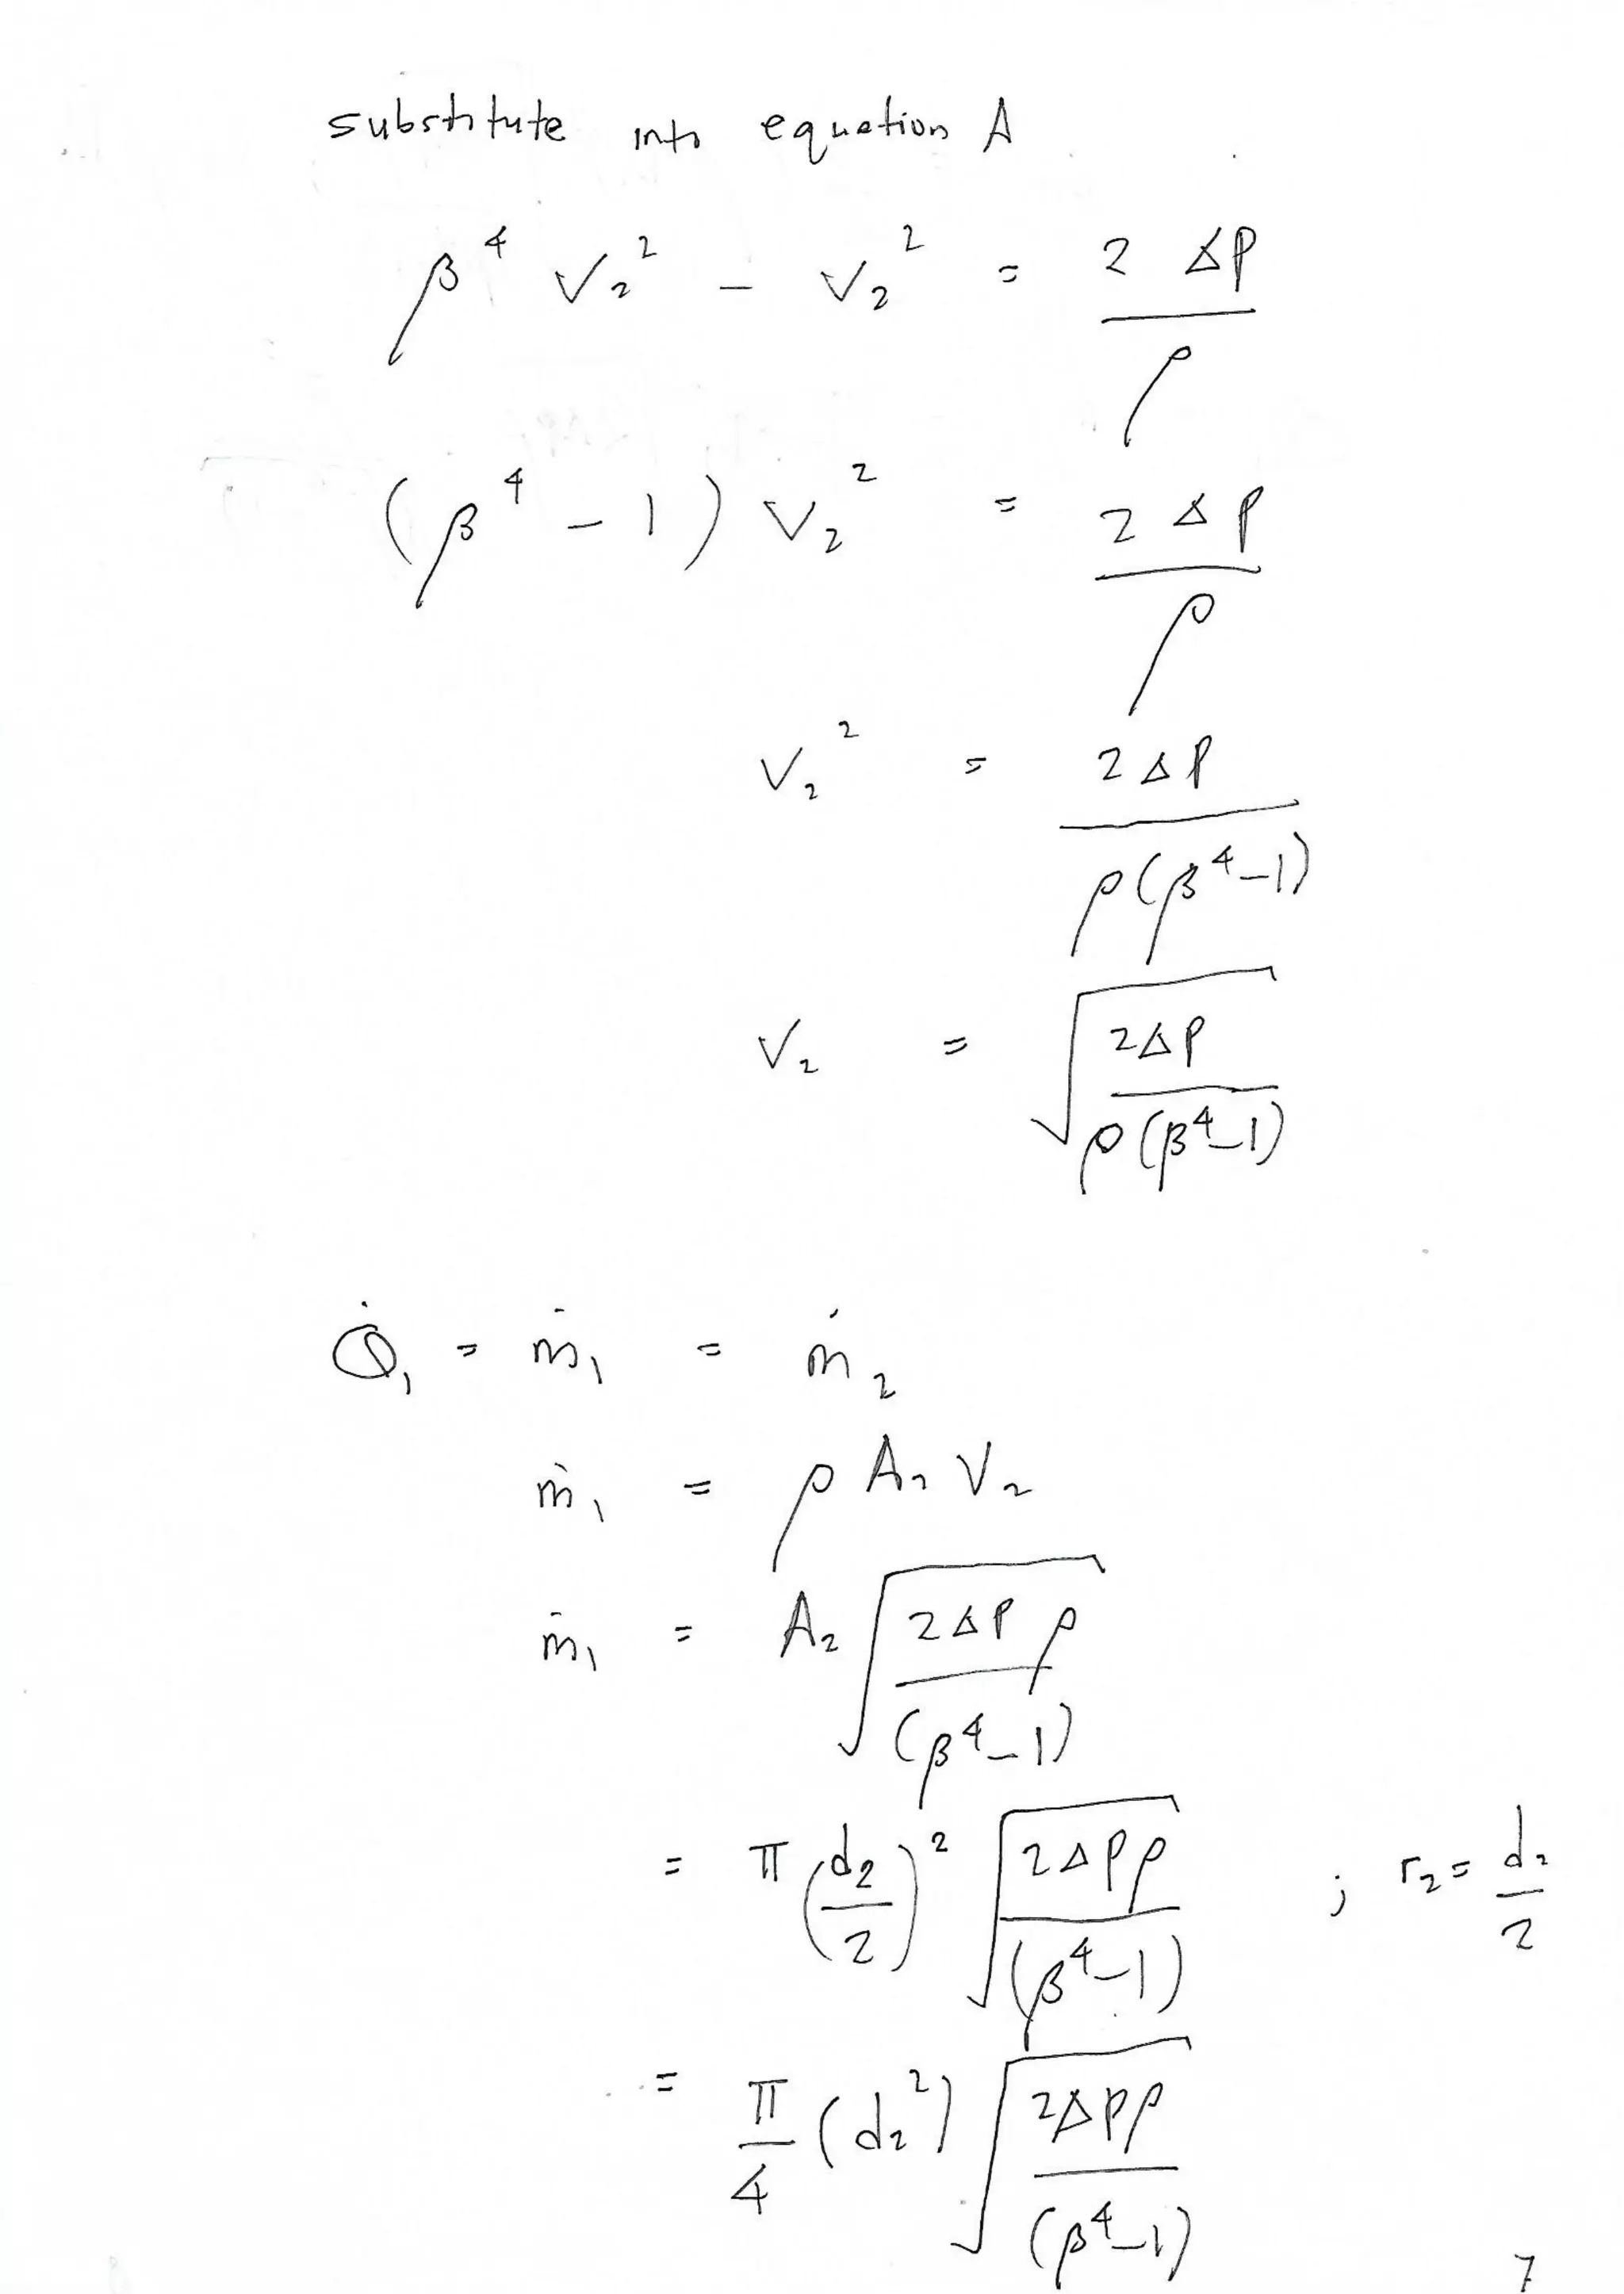 substitute into equation A
β⁴ V₂² - V₂² = 2 ΔP / ρ
(β⁴ - 1) V₂² = 2 ΔP / ρ
V₂² = 2ΔP / ρ(β⁴-1)
V₂ = √(2ΔP / ρ(β⁴-1))
Q̇₁ = ṁ₁ = ṁ₂
ṁ₁ = ρ A₂ V₂
ṁ₁ = A₂ √(2ΔP ρ / (β⁴-1))
= π (d₂/2)² √(2ΔPρ / (β⁴-1)) ; r₂ = d₂/2
= π/4 (d₂²) √(2ΔPρ / (β⁴-1))
7